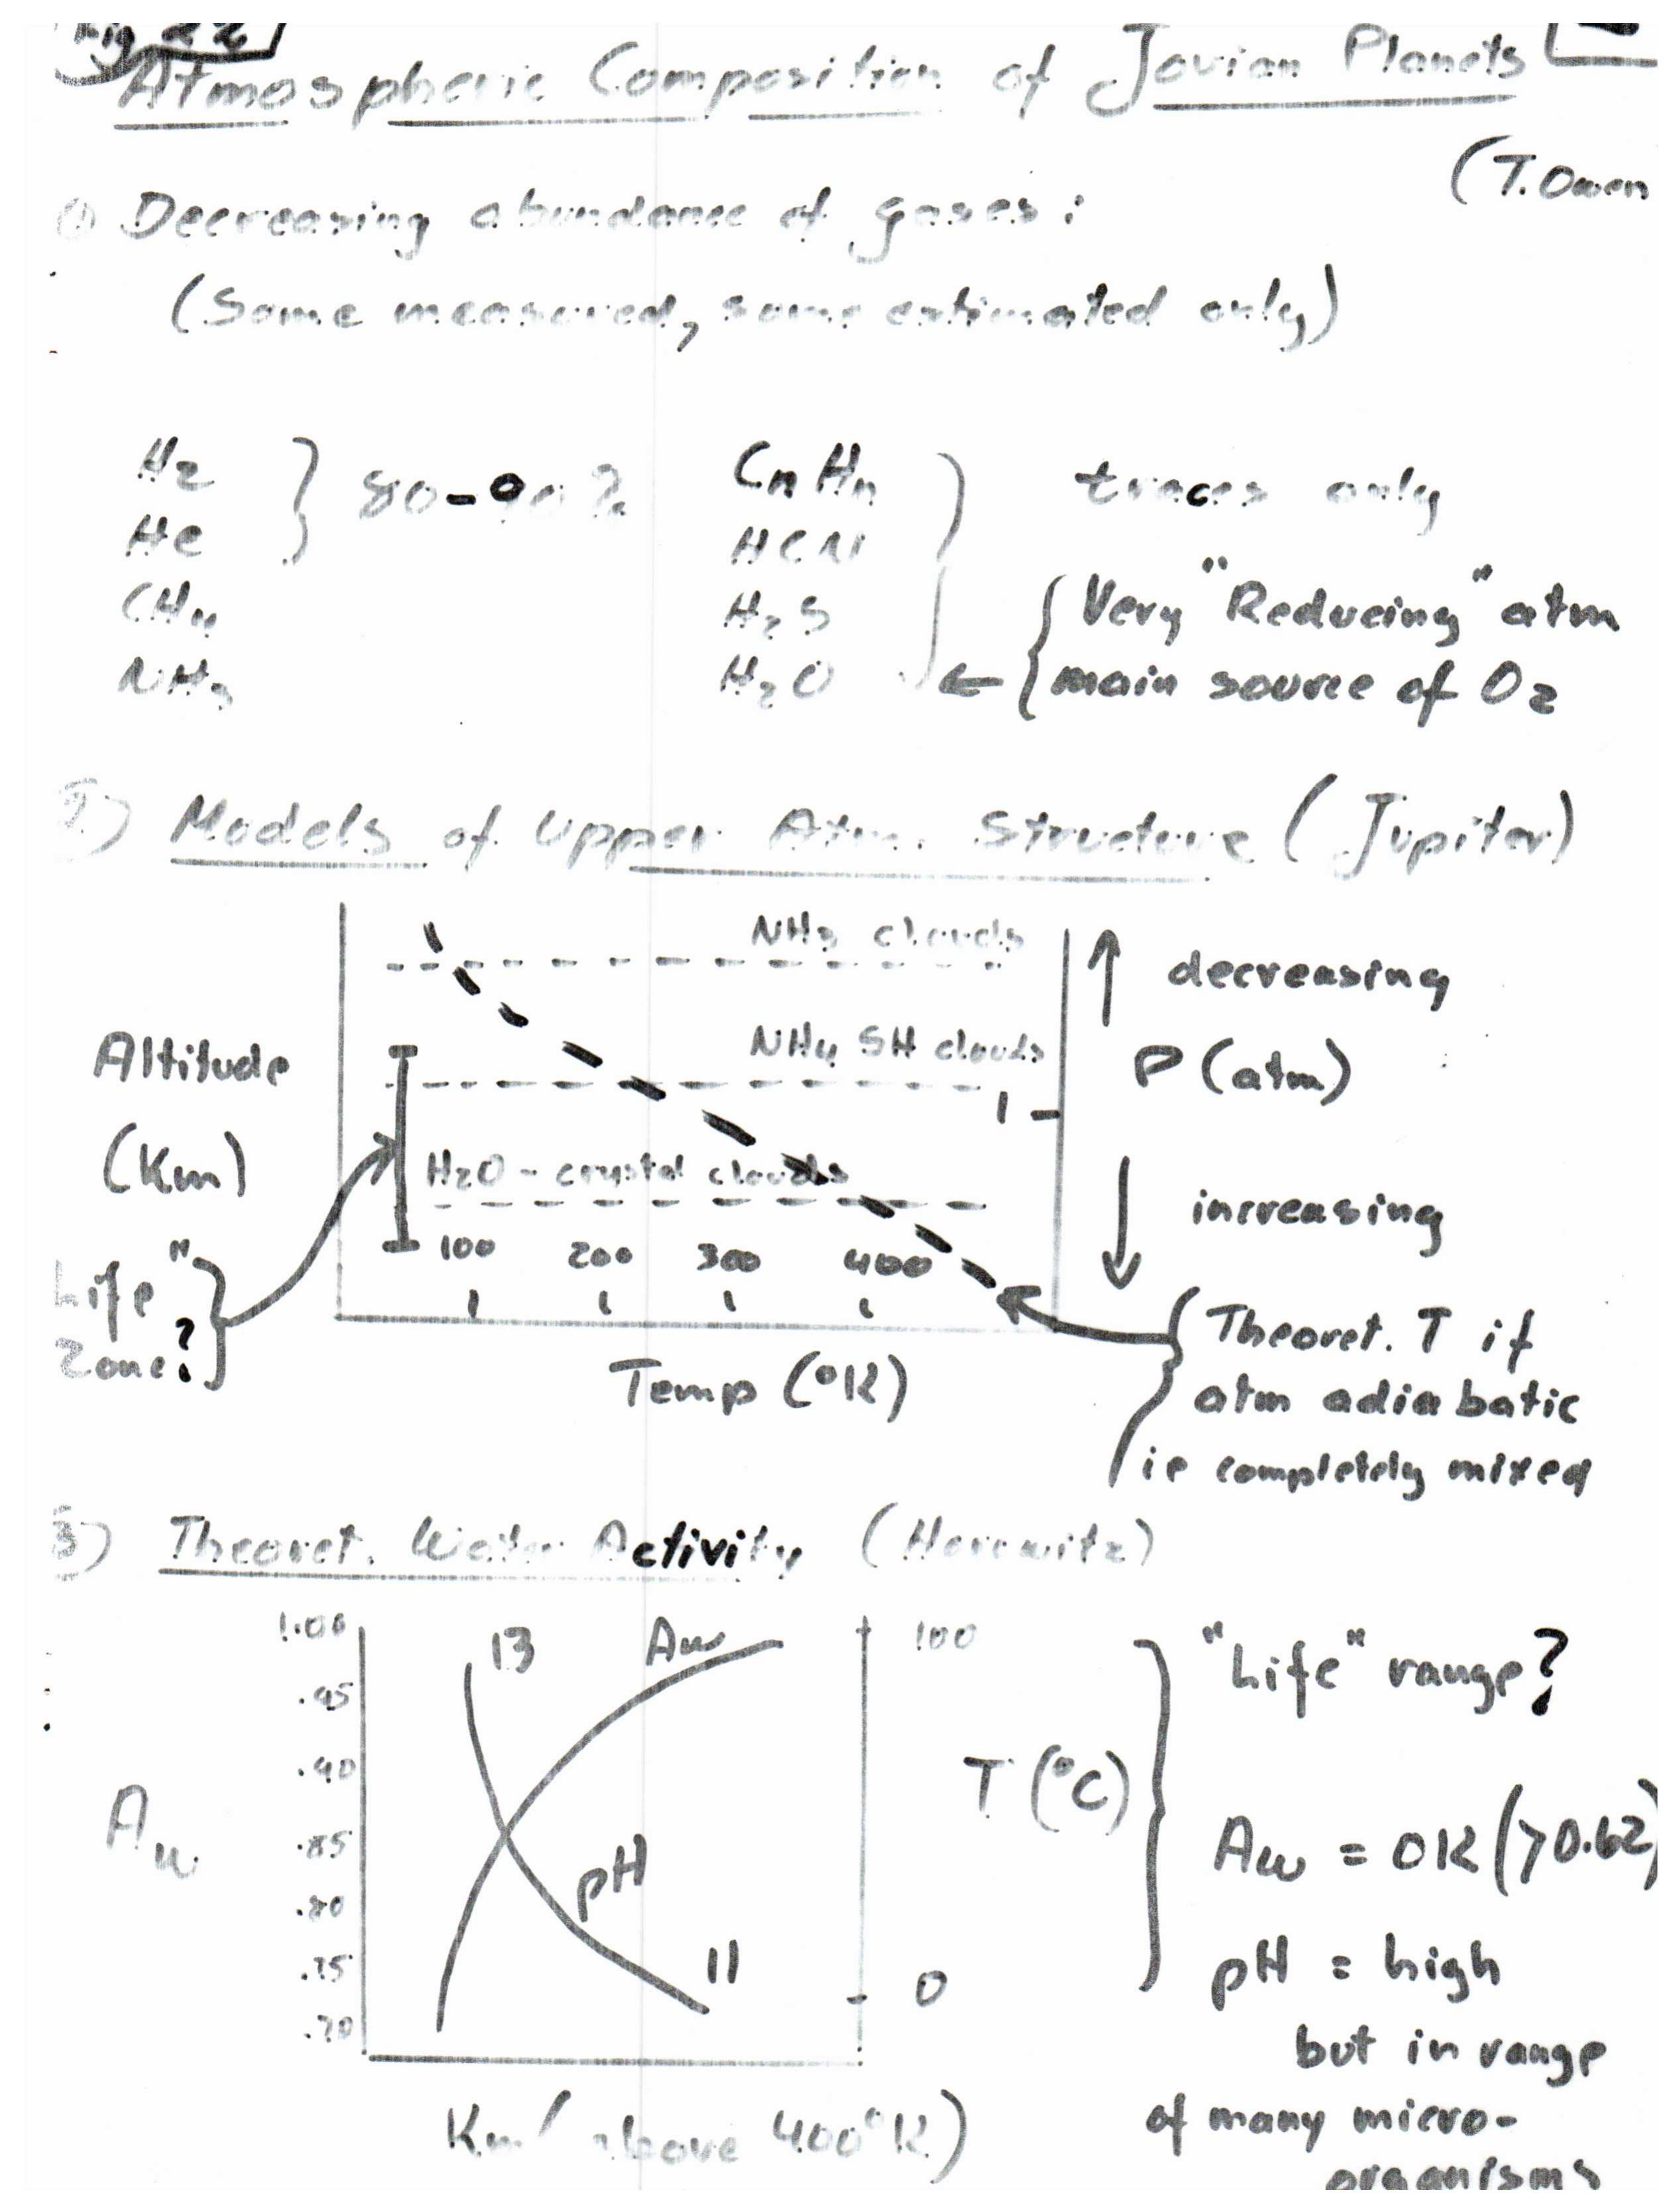 Fig 22
Atmospheric Composition of Jovian Planets
(T. Owen
1) Decreasing abundance of gases:
(Some measured, some estimated only)
H2
He
} 80-90%
CH4
NH3
CnHn
HCN
H2S
H2O
traces only
Very "Reducing" atm
main source of O2
2) Models of Upper Atm. Structure (Jupiter)
NH3 clouds
NH4 SH clouds
H2O - crystal clouds
Altitude
(Km)
Life"
Zone?
100 200 300 400
Temp (°K)
1
decreasing
P (atm)
increasing
Theoret. T if
atm adiabatic
ie completely mixed
3) Theoret. Water Activity (Horowitz)
1.00
.95
.90
.85
.80
.75
.70
Aw
13
Aw
pH
11
100
T (°C)
0
Km (above 400°K)
"Life" range?
Aw = OK (>0.62)
pH = high
but in range
of many micro-
organisms